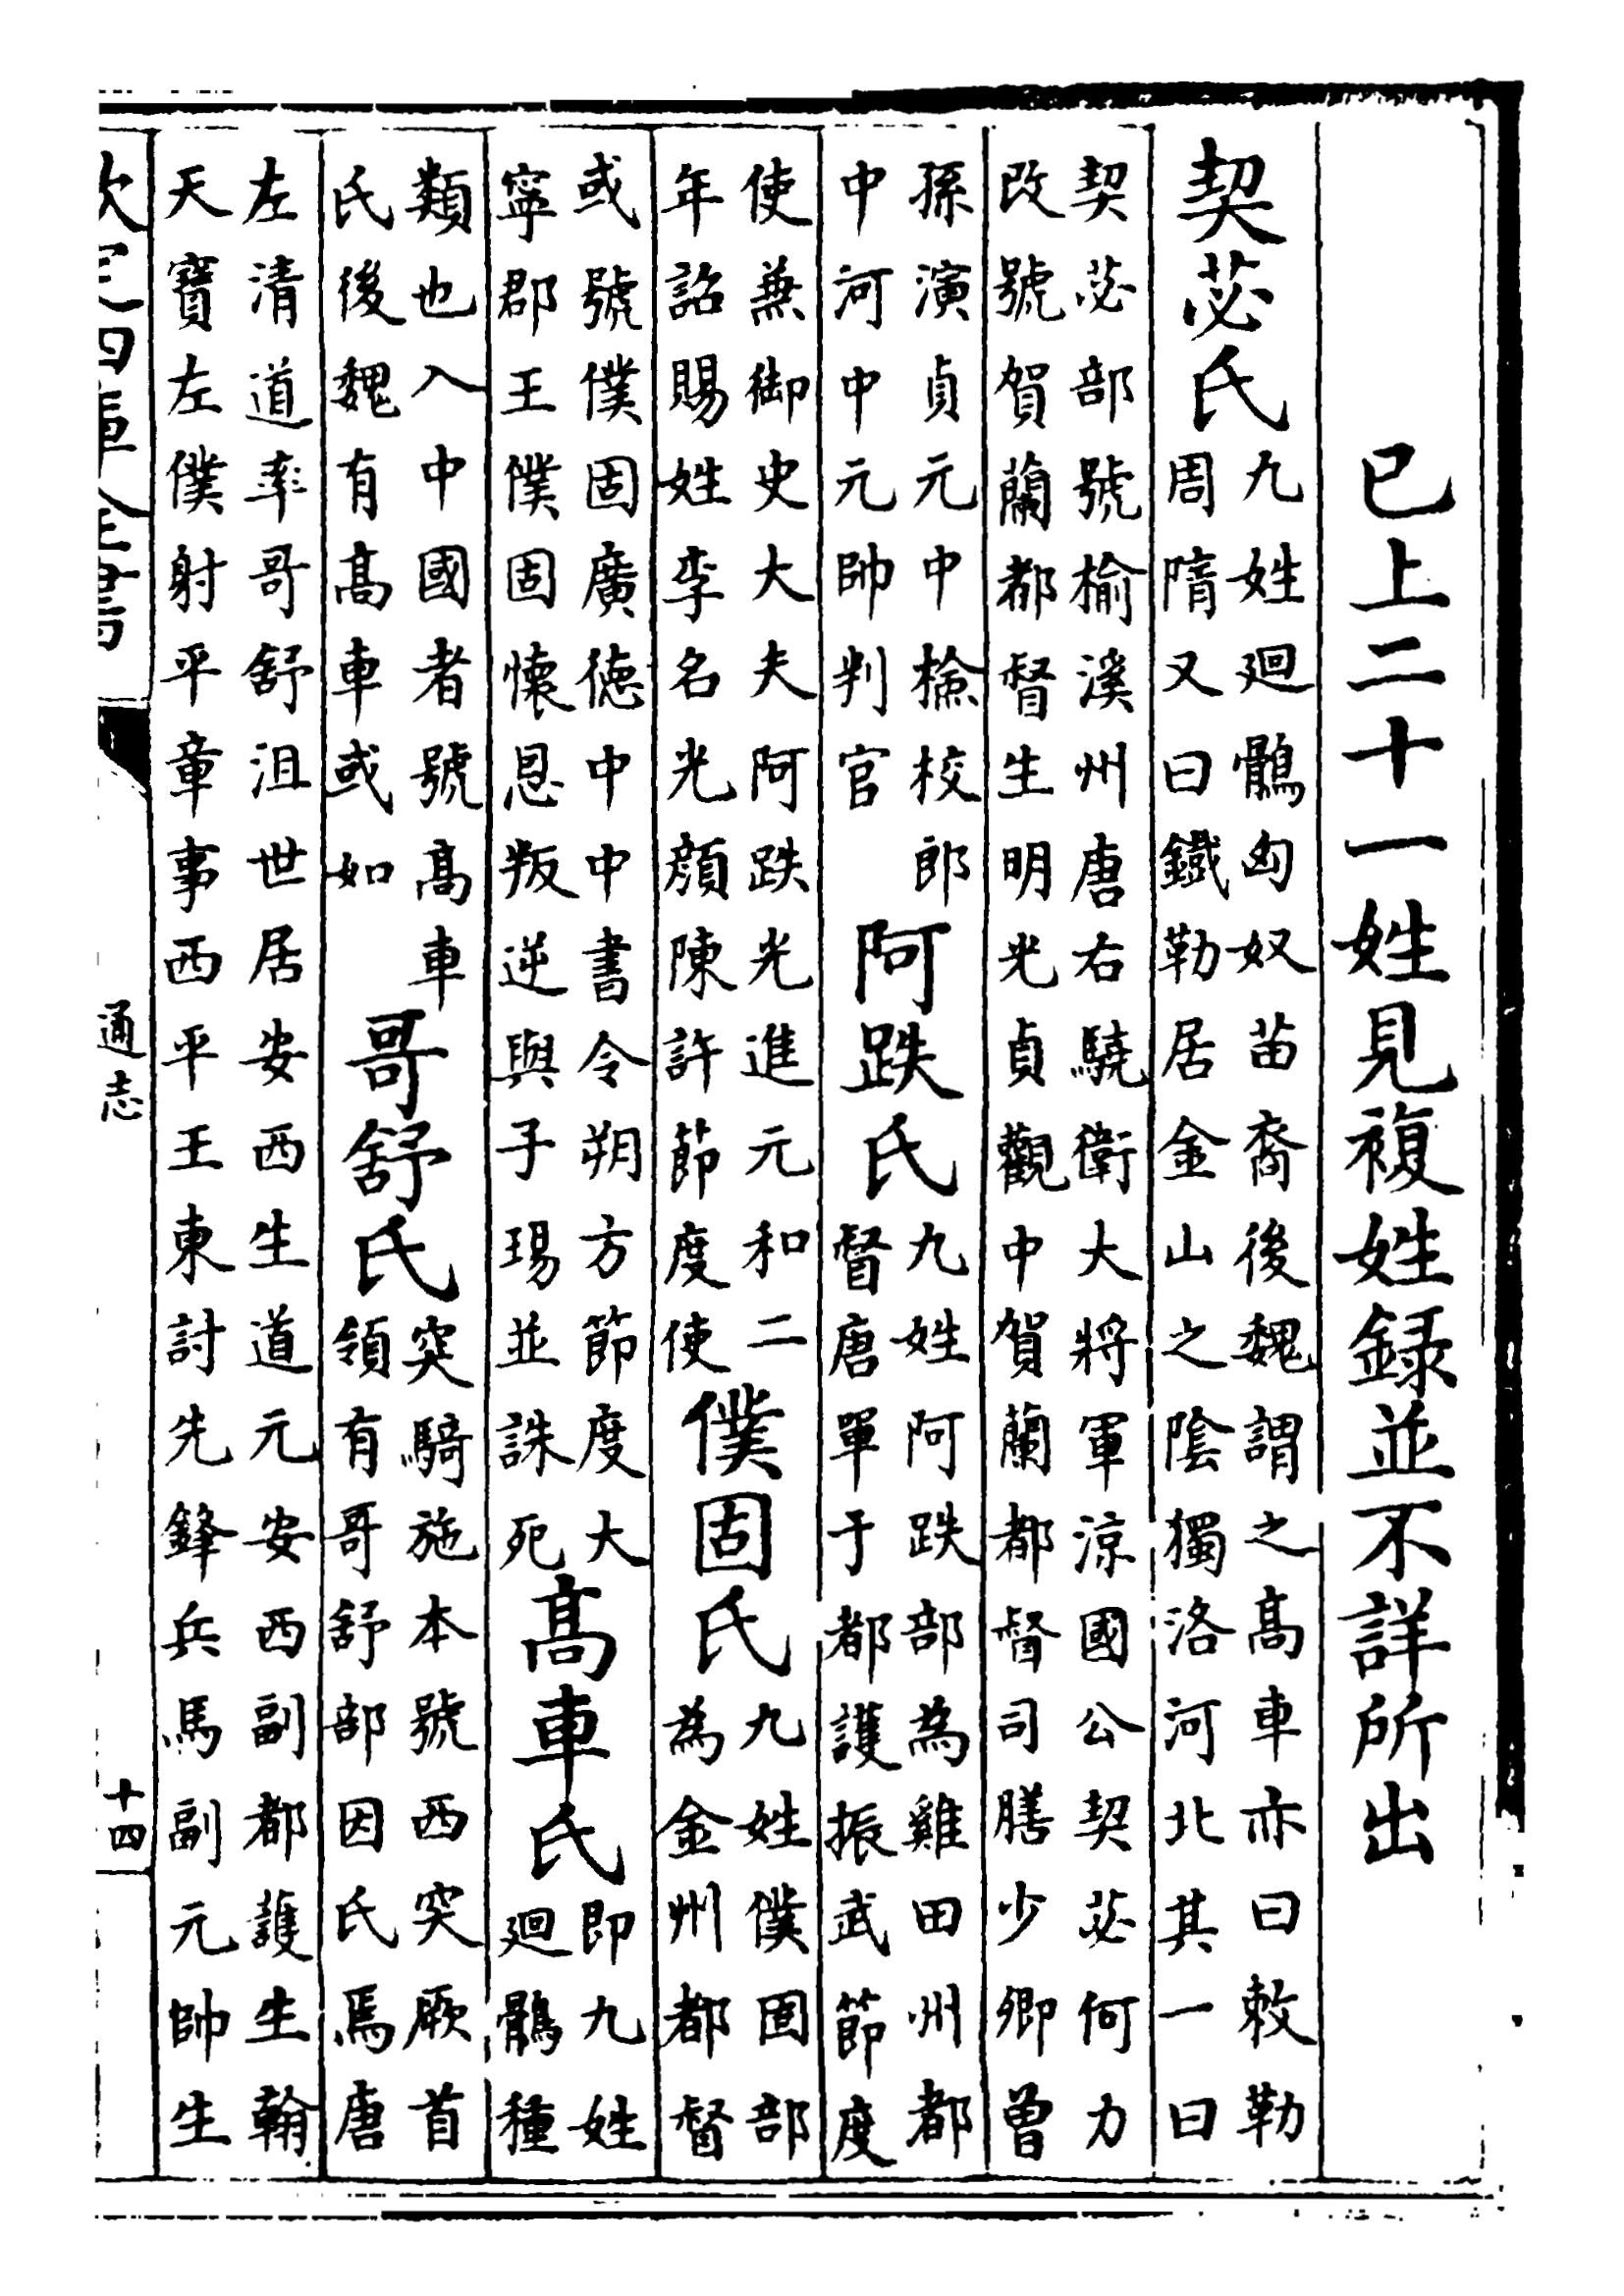 已上二十一姓見複姓録並不詳所出
契苾氏
九姓廻鶻匈奴苗裔後魏謂之髙車亦曰敕勒
周隋又曰鐵勒居金山之隂獨洛河北其一曰
契苾部號榆溪州唐右驍衛大將軍涼國公契苾何力
改號賀蘭都督生明光貞觀中賀蘭都督司膳少卿曽
孫演貞元中檢校郎
中河中元帥判官
阿跌氏
九姓阿跌部為雞田州都
督唐單于都護振武節度
使兼御史大夫阿跌光進元和二
年詔賜姓李名光顔陳許節度使
僕固氏
九姓僕固部
為金州都督
或號僕固廣徳中中書令朔方節度大
寧郡王僕固懷恩叛逆與子瑒並誅死
髙車氏
即九姓
廻鶻種
類也入中國者號髙車
氏後魏有髙車或如
哥舒氏
突騎施本號西突厥首
領有哥舒部因氏焉唐
左清道率哥舒沮世居安西生道元安西副都護生翰
天寶左僕射平章事西平王東討先鋒兵馬副元帥生
欽定四庫全書
通志
十四